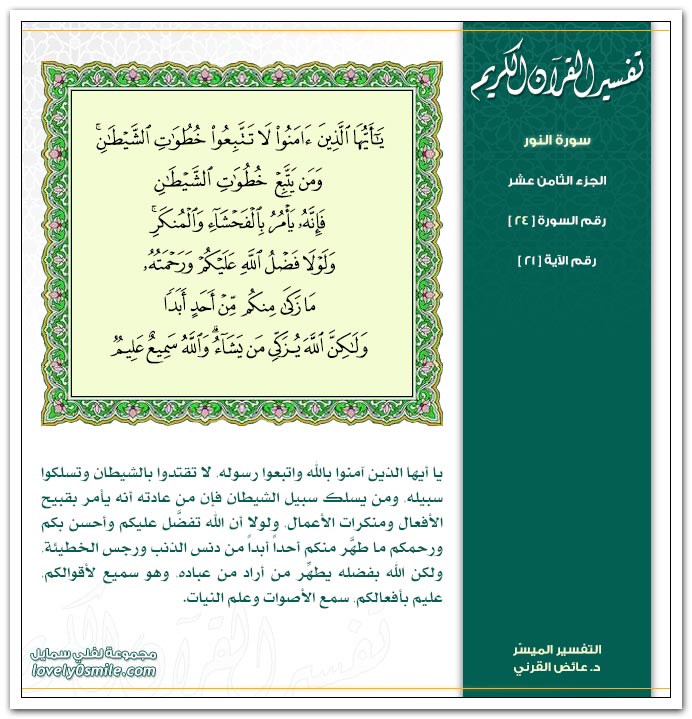 تفسير القرآن الكريم
سورة النور
الجزء الثامن عشر
رقم السورة [ ٢٤ ]
رقم الآية [ ٢١ ]
يَٰٓأَيُّهَا ٱلَّذِينَ ءَامَنُوا۟ لَا تَتَّبِعُوا۟ خُطُوَٰتِ ٱلشَّيْطَٰنِ ۚ
وَمَن يَتَّبِعْ خُطُوَٰتِ ٱلشَّيْطَٰنِ
فَإِنَّهُۥ يَأْمُرُ بِٱلْفَحْشَآءِ وَٱلْمُنكَرِ ۚ
وَلَوْلَا فَضْلُ ٱللَّهِ عَلَيْكُمْ وَرَحْمَتُهُۥ
مَا زَكَىٰ مِنكُم مِّنْ أَحَدٍ أَبَدًا
وَلَٰكِنَّ ٱللَّهَ يُزَكِّى مَن يَشَآءُ ۗ وَٱللَّهُ سَمِيعٌ عَلِيمٌ
يا أيها الذين آمنوا بالله واتبعوا رسوله، لا تقتدوا بالشيطان وتسلكوا
سبيله، ومن يسلك سبيل الشيطان فإن من عادته أنه يأمر بقبيح
الأفعال ومنكرات الأعمال، ولولا أن الله تفضَّل عليكم وأحسن بكم
ورحمكم ما طهَّر منكم أحداً أبداً من دنس الذنب ورجس الخطيئة،
ولكن الله بفضله يطهِّر من أراد من عباده، وهو سميع لأقوالكم،
عليم بأفعالكم، سمع الأصوات وعلم النيات.
التفسير الميسّر
د. عائض القرني
مجموعة لفلي سمايل
lovely0smile.com
تفسير القرآن الكريم